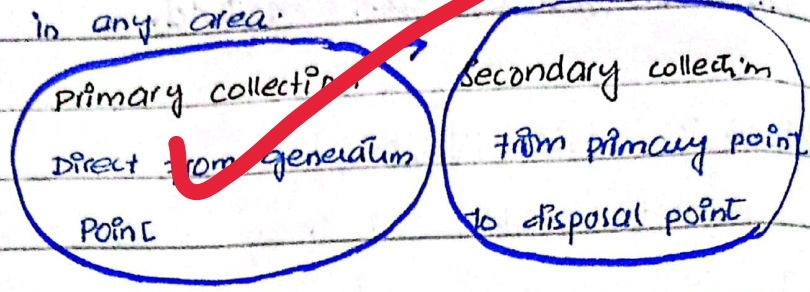 in any area.
Primary collection
Direct from generation
Point
Secondary collection
From primary point
to disposal point